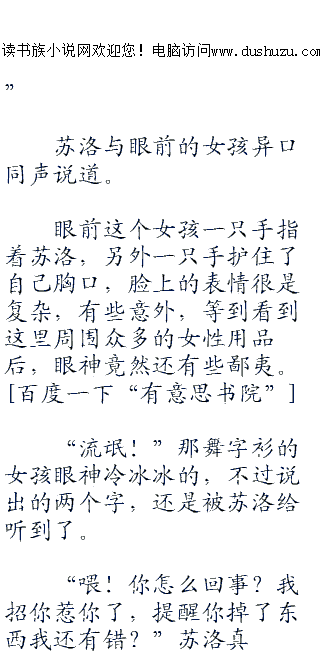 读书族小说网欢迎您！电脑访问www.dushuzu.com
”
苏洛与眼前的女孩异口
同声说道。
眼前这个女孩一只手指
着苏洛，另外一只手护住了
自己胸口，脸上的表情很是
复杂，有些意外，等到看到
这里周围众多的女性用品
后，眼神竟然还有些鄙夷。
[百度一下“有意思书院”]
“流氓！”那舞字衫的
女孩眼神冷冰冰的，不过说
出的两个字，还是被苏洛给
听到了。
“喂！你怎么回事？我
招你惹你了，提醒你掉了东
西我还有错？”苏洛真